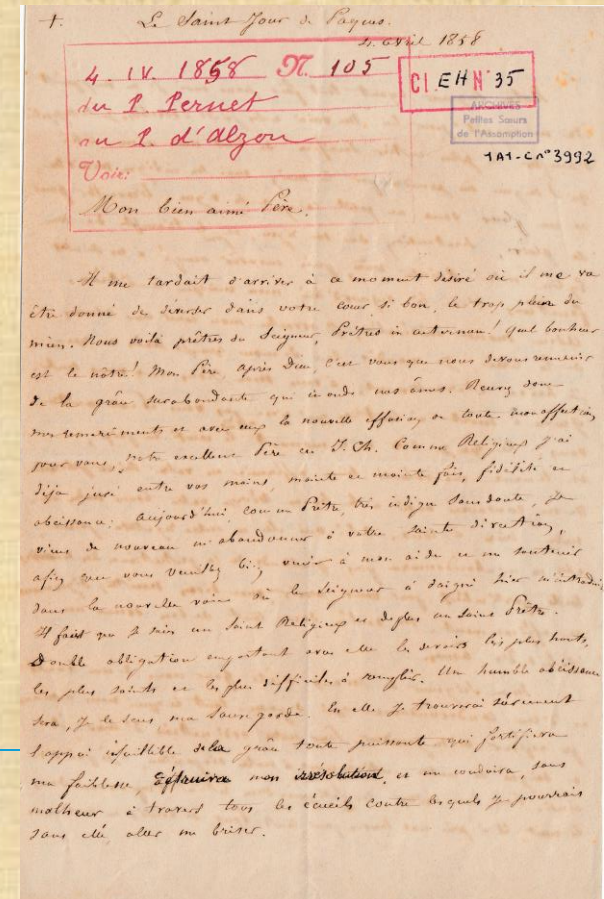 +. Le Saint Jour de Pâques.
4 avril 1858
4. IV. 1858 N. 105
du P. Pernet
au P. d'Alzon
Voir:
CI. EH N° 35
ARCHIVES
Petites Sœurs
de l'Assomption
1A1-C n° 3992
Mon bien aimé Père.
Il me tardait d'arriver à ce moment désiré où il me va
être donné de déverser dans votre cœur si bon, le trop plein du
mien. Nous voilà prêtres du Seigneur, Prêtres in aeternum! quel bonheur
est le nôtre! Mon Père, après Dieu, c'est vous que nous devons remercier
de la grâce surabondante qui inonde nos âmes. Recevez donc
mes remerciments et avec eux la nouvelle effusion de toute mon affection
pour vous, notre excellent Père en J. Ch. Comme Religieux j'ai
déjà juré entre vos mains, mainte et mainte fois, fidélité et
obéissance; aujourd'hui, comme Prêtre, très indigne sans doute, je
viens de nouveau m'abandonner à votre sainte direction,
afin que vous veuillez bien venir à mon aide et me soutenir
dans la nouvelle voie où le Seigneur a daigné hier m'introduire
Il faut que je sois un saint Religieux et de plus un saint Prêtre.
Double obligation emportant avec elle les devoirs les plus hauts,
les plus saints et les plus difficiles à remplir. Un humble obéissance
sera, je le sens ma sauvegarde. En elle je trouverai sûrement
l'appui infaillible de la grâce toute puissante qui fortifiera
ma faiblesse, détruira mon irrésolution, et me conduira, sans
malheur à travers tous les écueils contre lesquels je pourrais
sans elle aller me briser.